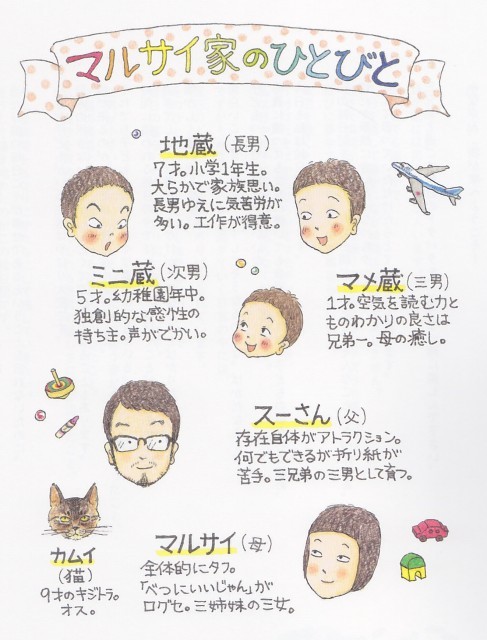 マルサイ家のひとびと
地蔵（長男）
7才。小学1年生。
大らかで家族思い。
長男ゆえに気苦労が
多い。工作が得意。
ミニ蔵（次男）
5才。幼稚園年中。
独創的な感性の
持ち主。声がでかい。
マメ蔵（三男）
1才。空気を読む力と
ものわかりの良さは
兄弟一。母の癒し。
スーさん（父）
存在自体がアトラクション。
何でもできるが折り紙が
苦手。三兄弟の三男として育つ。
カムイ
（猫）
9才のキジトラ。
オス。
マルサイ（母）
全体的にタフ。
「べつにいいじゃん」が
口グセ。三姉妹の三女。